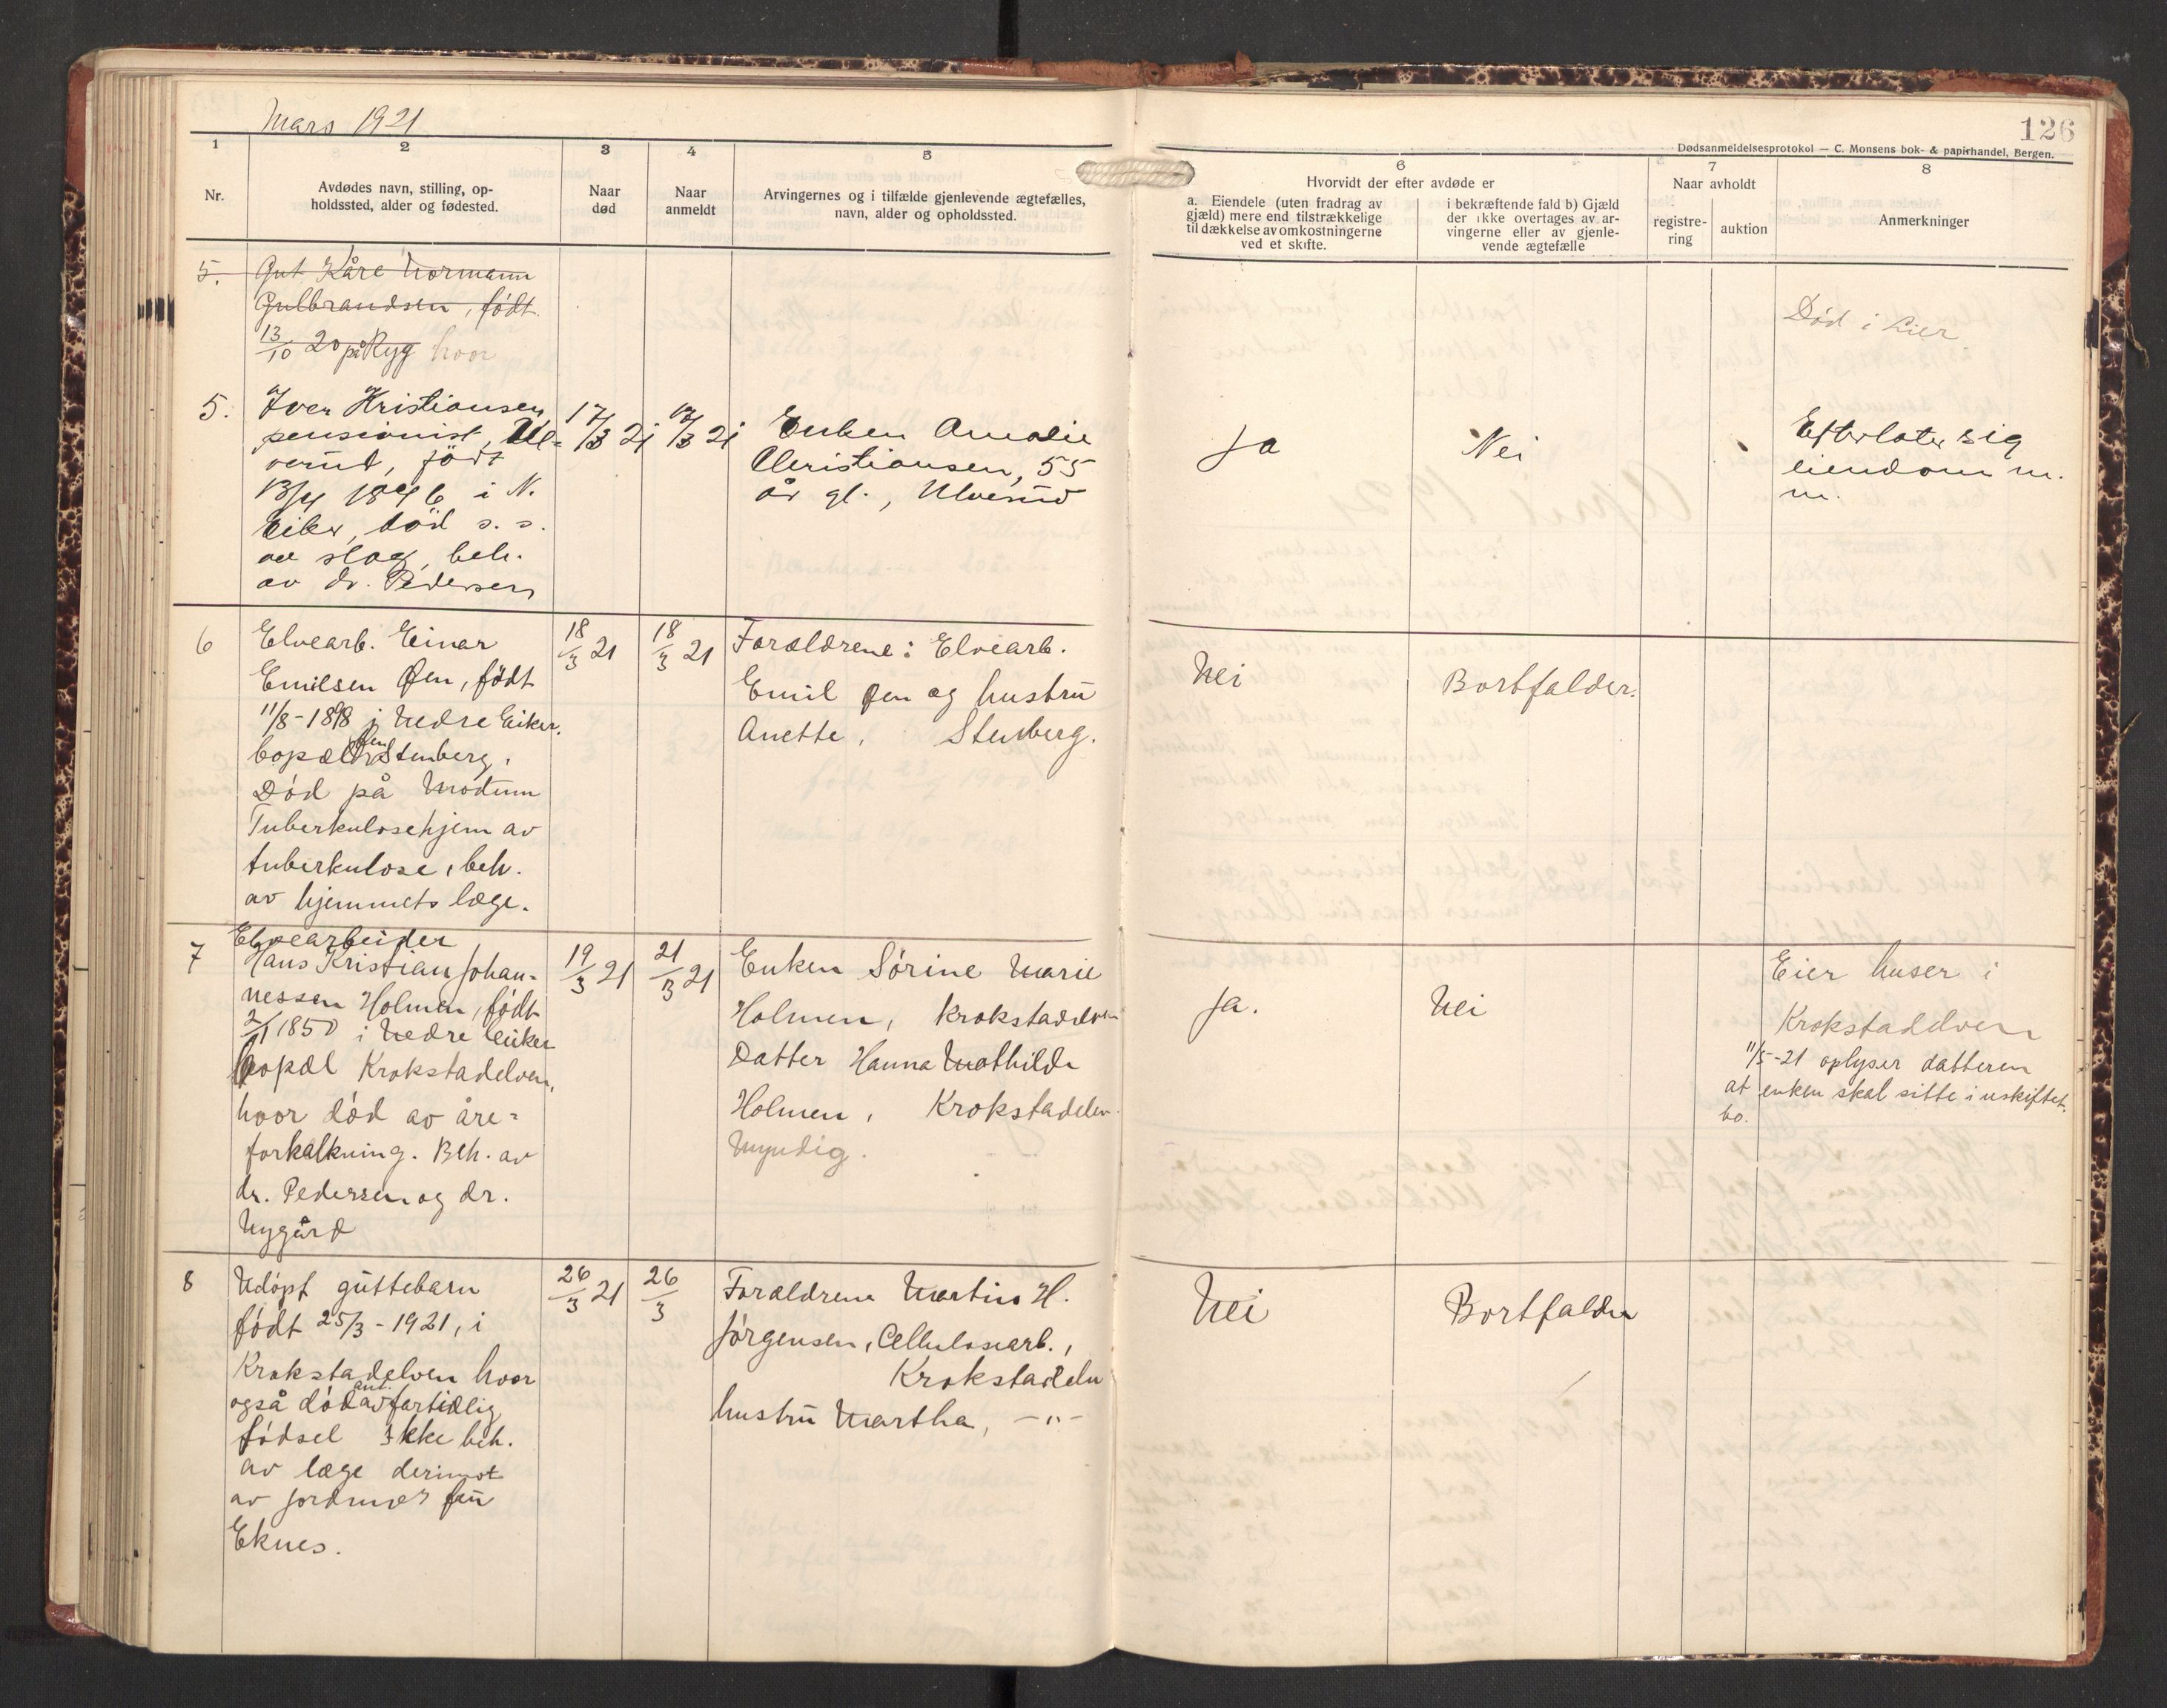 Mars 1921
126
Dødsanmeldelsesprotokol — C. Monsens bok- & papirhandel, Bergen.
1
Nr.
2
Avdødes navn, stilling, op-
holdssted, alder og fødested.
3
Naar
død
4
Naar
anmeldt
5
Arvingernes og i tilfælde gjenlevende ægtefælles,
navn, alder og opholdssted.
6
Hvorvidt der efter avdøde er
a. Eiendele (uten fradrag av
gjæld) mere end tilstrækkelige
til dækkelse av omkostningerne
ved et skifte.
i bekræftende fald b) Gjæld
der ikke overtages av ar-
vingerne eller av gjenle-
vende ægtefælle
7
Naar avholdt
registre-
ring
auktion
8
Anmerkninger
5.
Gut Kåre Normann
Gulbrandsen, født
13/10 20 på Ryg hvor
Død i Lier
5.
Iver Kristiansen
pensionist, Ul-
verud, født
13/4 1846 i N.
Eiker, død s. s.
av slag, beh.
av dr. Pedersen
17/3 21
17/3 21
Enken Amalie
Christiansen, 55
år gl., Ulverud
Ja
Nei
Efterlater sig
eiendom m.
m.
6
Elvearb. Einar
Emilsen Øen, født
11/8-1898 i Nedre Eiker.
bopæl Øen Stenberg,
Død på Modum
Tuberkulosehjem av
tuberkulose, beh.
av hjemmets læge.
18/3 21
18/3 21
Forældrene: Elvearb.
Emil Øen og hustru
Anette, Stenberg.
Nei
Bortfalder.
7
Elvearbeider
Hans Kristian Johan-
nessen Holmen, født
2/11 1850 i Nedre Eiker
bopæl Krokstadelven,
hvor død av åre-
forkalkning. Beh. av
dr. Pedersen og dr.
Nygård
19/3 21
21/3 21
Enken Sørine Marie
Holmen, Krokstadelven
Datter Hanna Mathilde
Holmen, Krokstadelven
Myndig.
Ja.
Nei
Eier huser i
Krokstadelven
11/5-21 oplyser datteren
at enken skal sitte i uskiftet
bo.
8
Udøpt guttebarn
født 25/3-1921, i
Krokstadelven hvor
også død ant. av fortidlig
fødsel Ikke beh.
av læge derimot
av jordmor fru
Eknes.
26/3 21
26/3
Forældrene Martin H.
Jørgensen, Cellulosearb.,
Krokstadelv
hustru Martha, -"-
Nei
Bortfalder